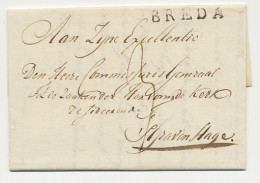 BREDA
Aan Zyne Excellentie
Den Heere Commissaris Generaal
der Hervormde Kerk
S Graven Hage.